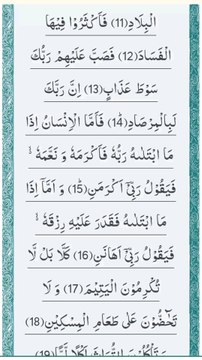 الْبِلَادِ(11) فَاَكْثَرُوْا فِيْهَا
الْفَسَادَ(12) فَصَبَّ عَلَيْهِمْ رَبُّكَ
سَوْطَ عَذَابٍ(13) اِنَّ رَبَّكَ
لَبِالْمِرْصَادِ(14) فَاَمَّا الْاِنْسَانُ اِذَا
مَا ابْتَلٰىهُ رَبُّهٗ فَاَكْرَمَهٗ وَ نَعَّمَهٗ ۙ
فَيَقُوْلُ رَبِّیْۤ اَكْرَمَنِ(15) وَ اَمَّاۤ اِذَا
مَا ابْتَلٰىهُ فَقَدَرَ عَلَيْهِ رِزْقَهٗ ۙ
فَيَقُوْلُ رَبِّیْۤ اَهَانَنِ(16) كَلَّا بَلْ لَّا
تُكْرِمُوْنَ الْيَتِيْمَ(17) وَ لَا
تَحٰٓضُّوْنَ عَلٰى طَعَامِ الْمِسْكِيْنِ(18)
وَ تَاْكُلُوْنَ التُّرَاثَ اَكْلًا لَّمًّا(19)